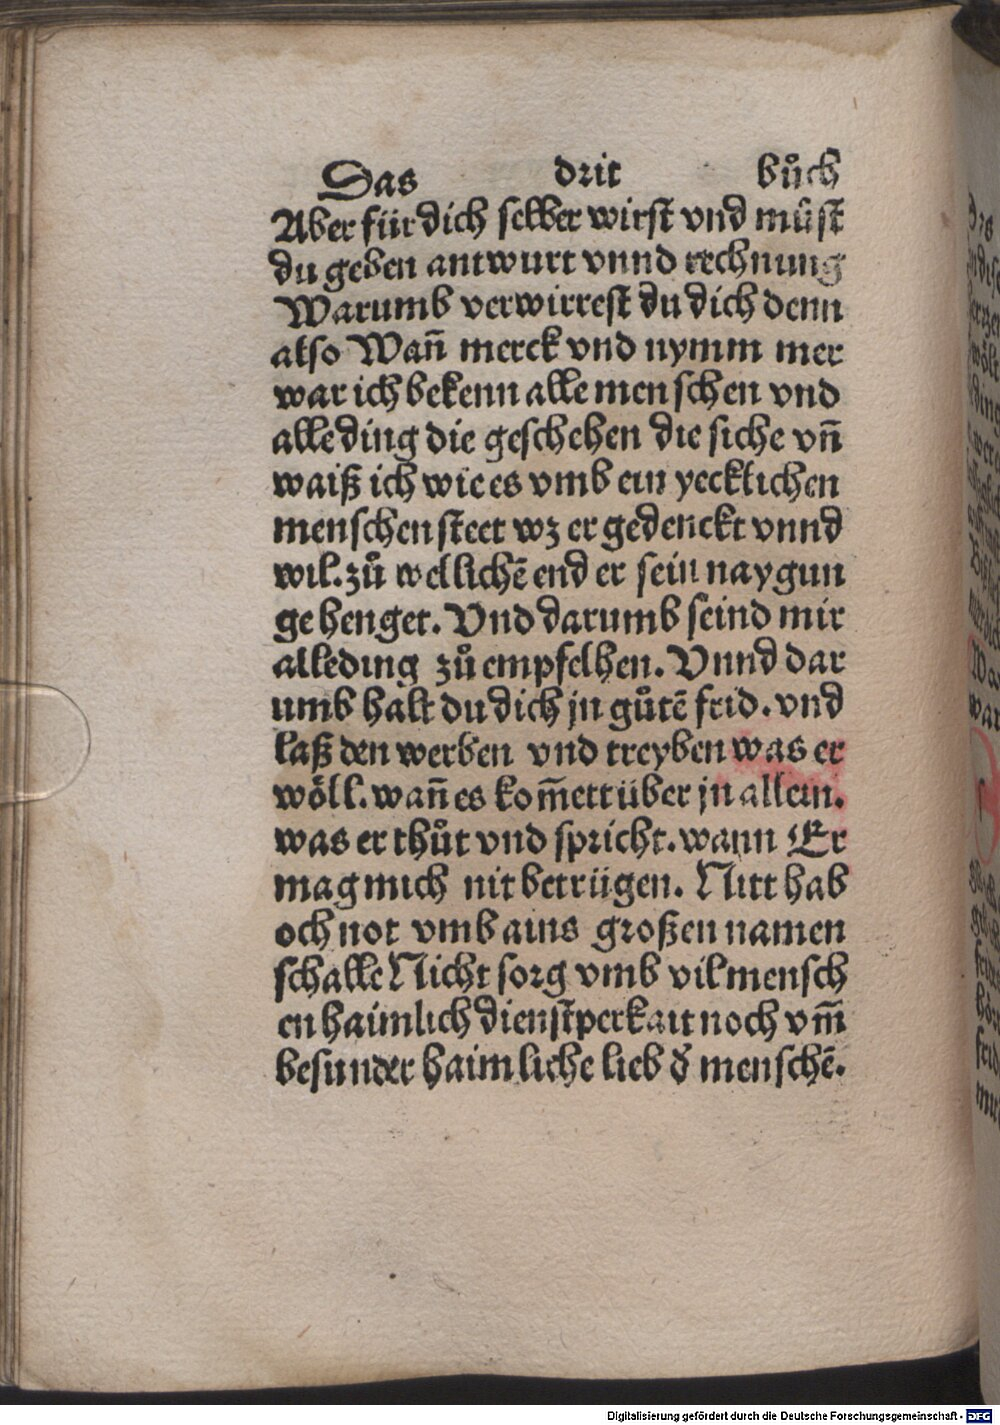 Das drit bůch
Aber für dich selber wirst vnd můst
du geben antwurt vnnd rechnung
Warumb verwirrest du dich denn
also Wañ merck vnd nymm mer
war ich bekenn alle menschen vnd
alle ding die geschehen die siche vñ
waiß ich wie es vmb ein yecklichen
menschen steet wz er gedenckt vnnd
wil. zů wellichē end er sein naygun
gehenget. Vnd darumb seind mir
alleding zů empfelhen. Vnnd dar
umb halt du dich jn gůtē frid. vnd
laß den werben vnd treyben was er
wöll. wañ es kom̄ett über jn allein.
was er thůt vnd spricht. wann Er
mag mich nit betrügen. Nitt hab
och not vmb ains großen namen
schalle Nicht sorg vmb vil mensch
en haimlich dienstperkait noch vm̄
besunder haimliche lieb d̓ menschē.
Digitalisierung gefördert durch die Deutsche Forschungsgemeinschaft - DFG